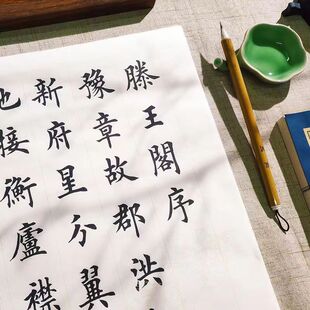 滕王閣序
豫章故郡洪
新府星分翼
接衡廬襟